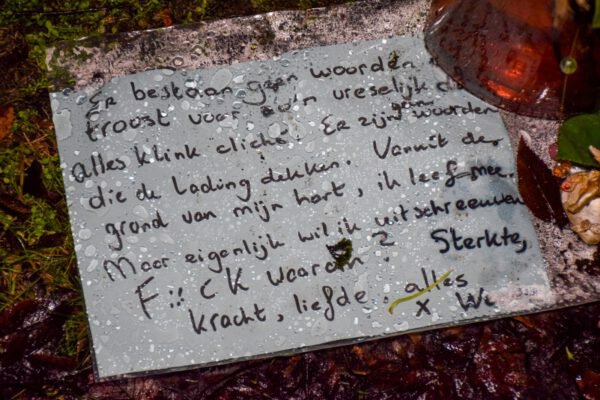 Er bestaan geen woorden
troost voor zo'n vreselijk
alles klink cliché. Er zijn geen woorden
die de lading dekken. Vanuit de
grond van mijn hart, ik leef mee.
Maar eigenlijk wil ik uitschreeuwen
F!!CK waarom? Sterkte,
kracht, liefde, alles
x We